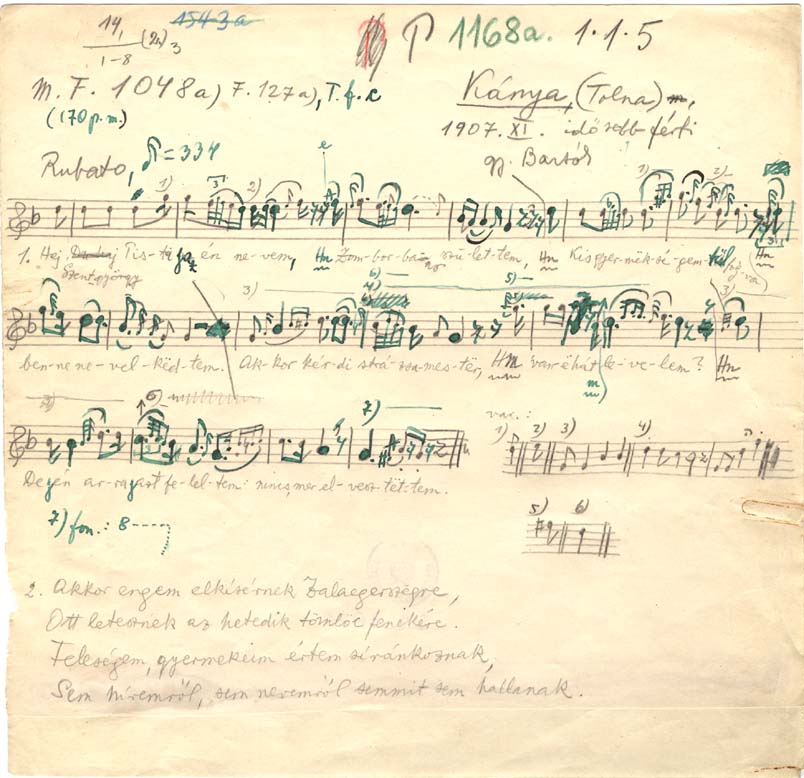 14, (21) 3
1-8
1543a
P 1168a. 1.1.5
M. F. 1048a) F. 127a), T. f. c
(170 p.m.)
Kánya, (Tolna)
1907. XI. idősebb férfi
gy. Bartók
Rubato, ♪=334
1. Hej, Pis-ta én ne-vem, Hn Zom-bor-ba szü-let-tem, Hn Kis gyer-mëk-sé-gem-tül
Szentgyörgy
ben-ne ne-vel-këd-tem. Ak-kor kér-di strá-zsa-mes-tër, Hn van-ë hát le-ve-lem? Hn
De én ar-ra azt fe-lel-tem: nincs, mer el-vesz-tët-tem.
var.:
1) 2) 3) 4)
5) 6)
7) fon.: 8----
2. Akkor engem elkísérnek Zalaegerszegre,
Ott letesznek az hetedik tömlöc fenekére.
Feleségem, gyermekeim értem siránkoznak,
Sem híremről, sem nevemről semmit sem hallanak.